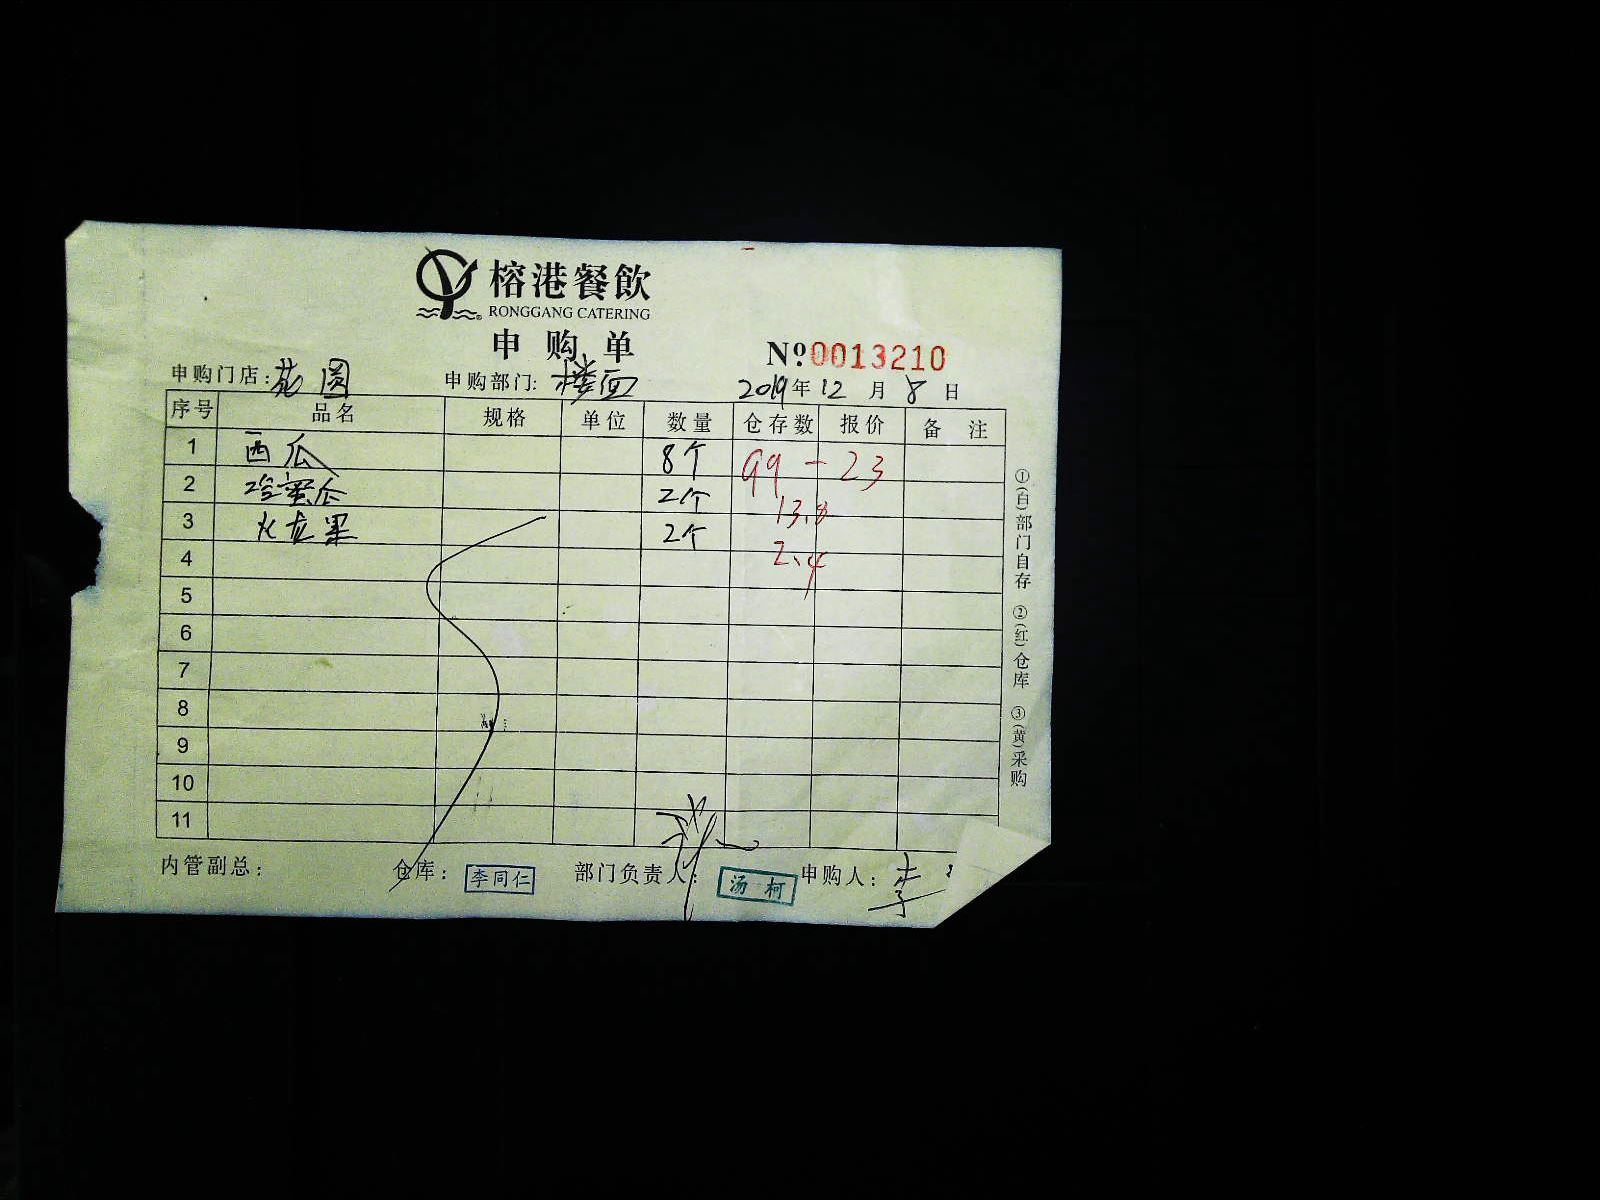 榕港餐飲
RONGGANG CATERING
申购单
No 0013210
申购门店：花圆 申购部门：楼面 2019年12月8日
序号 品名 规格 单位 数量 仓存数 报价 备注
1 西瓜 8个 99-23
2 哈蜜瓜 2个 13.8
3 火龙果 2个 2.4
4
5
6
7
8
9
10
11
内管副总： 仓库：李同仁 部门负责人：汤柯 申购人：李
①(白)部门自存 ②(红)仓库 ③(黄)采购